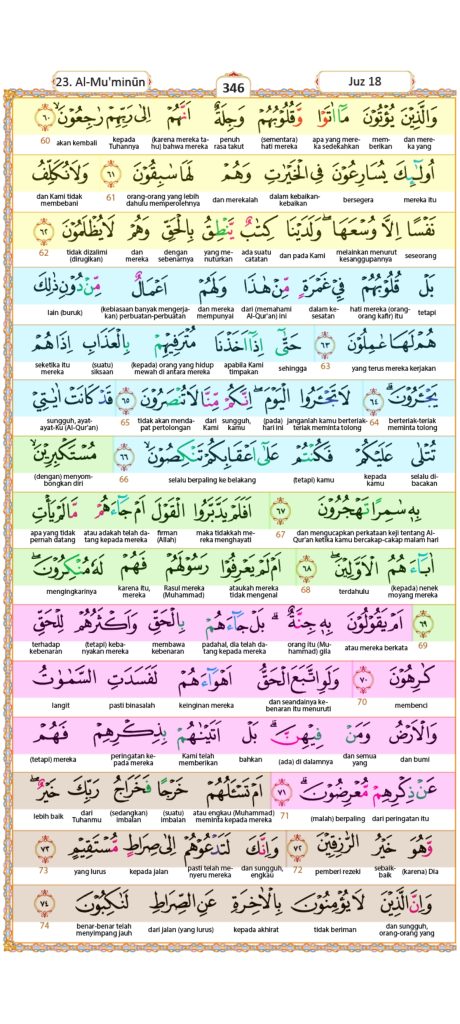 23. Al-Mu'minūn 346 Juz 18
وَالَّذِيْنَ يُؤْتُوْنَ مَآ اٰتَوْا وَّقُلُوْبُهُمْ وَجِلَةٌ اَنَّهُمْ اِلٰى رَبِّهِمْ رٰجِعُوْنَ ۙ ٦٠
dan mereka yang memberikan apa yang mereka sedekahkan (sementara) hati mereka penuh rasa takut (karena mereka tahu) bahwa mereka kepada Tuhannya akan kembali 60
اُولٰۤىِٕكَ يُسَارِعُوْنَ فِى الْخَيْرٰتِ وَهُمْ لَهَا سٰبِقُوْنَ ٦١ وَلَا نُكَلِّفُ
mereka itu bersegera dalam kebaikan-kebaikan dan merekalah orang-orang yang lebih dahulu memperolehnya 61 dan Kami tidak membebani
نَفْسًا اِلَّا وُسْعَهَا ۖ وَلَدَيْنَا كِتٰبٌ يَّنْطِقُ بِالْحَقِّ وَهُمْ لَا يُظْلَمُوْنَ ٦٢
seseorang melainkan menurut kesanggupannya dan pada Kami ada suatu catatan yang menuturkan dengan sebenarnya dan mereka tidak dizalimi (dirugikan) 62
بَلْ قُلُوْبُهُمْ فِيْ غَمْرَةٍ مِّنْ هٰذَا وَلَهُمْ اَعْمَالٌ مِّنْ دُوْنِ ذٰلِكَ
tetapi hati mereka (orang-orang kafir) itu dalam kesesatan dari (memahami Al-Qur'an) ini dan mereka mempunyai (kebiasaan banyak mengerjakan) perbuatan-perbuatan lain (buruk)
هُمْ لَهَا عٰمِلُوْنَ ٦٣ حَتّٰٓى اِذَآ اَخَذْنَا مُتْرَفِيْهِمْ بِالْعَذَابِ اِذَا هُمْ
yang terus mereka kerjakan 63 sehingga apabila Kami timpakan (kepada) orang yang hidup mewah di antara mereka (suatu) siksaan seketika itu mereka
يَجْـَٔرُوْنَ ۗ ٦٤ لَا تَجْـَٔرُوا الْيَوْمَ ۖ اِنَّكُمْ مِّنَّا لَا تُنْصَرُوْنَ ٦٥ قَدْ كَانَتْ اٰيٰتِيْ
berteriak-teriak meminta tolong 64 janganlah kamu berteriak-teriak meminta tolong (pada) hari ini sungguh, kamu dari Kami tidak akan mendapat pertolongan 65 sungguh, ayat-ayat-Ku (Al-Qur'an)
تُتْلٰى عَلَيْكُمْ فَكُنْتُمْ عَلٰٓى اَعْقَابِكُمْ تَنْكِصُوْنَ ۙ ٦٦ مُسْتَكْبِرِيْنَ ۖ
selalu dibacakan kepada kamu (tetapi) kamu selalu berpaling ke belakang 66 (dengan) menyombongkan diri
بِهٖ سٰمِرًا تَهْجُرُوْنَ ٦٧ اَفَلَمْ يَدَّبَّرُوا الْقَوْلَ اَمْ جَاۤءَهُمْ مَّا لَمْ يَأْتِ
dan mengucapkan perkataan keji tentang Al-Qur'an ketika kamu bercakap-cakap malam hari 67 maka tidakkah mereka menghayati firman (Allah) atau adakah telah datang kepada mereka apa yang tidak pernah datang
اٰبَاۤءَهُمُ الْاَوَّلِيْنَ ۖ ٦٨ اَمْ لَمْ يَعْرِفُوْا رَسُوْلَهُمْ فَهُمْ لَهٗ مُنْكِرُوْنَ ۖ
(kepada) nenek moyang mereka terdahulu 68 ataukah mereka tidak mengenal Rasul mereka (Muhammad) karena itu, mereka mengingkarinya
٦٩ اَمْ يَقُوْلُوْنَ بِهٖ جِنَّةٌ ۗ بَلْ جَاۤءَهُمْ بِالْحَقِّ وَاَكْثَرُهُمْ لِلْحَقِّ
69 atau mereka berkata orang itu (Muhammad) gila padahal, dia telah datang kepada mereka membawa kebenaran (tetapi) kebanyakan mereka terhadap kebenaran
كٰرِهُوْنَ ٧٠ وَلَوِ اتَّبَعَ الْحَقُّ اَهْوَاۤءَهُمْ لَفَسَدَتِ السَّمٰوٰتُ
membenci 70 dan seandainya kebenaran itu menuruti keinginan mereka pasti binasalah langit
وَالْاَرْضُ وَمَنْ فِيْهِنَّ ۗ بَلْ اَتَيْنٰهُمْ بِذِكْرِهِمْ فَهُمْ
dan bumi dan semua yang (ada) di dalamnya bahkan Kami telah memberikan peringatan kepada mereka (tetapi) mereka
عَنْ ذِكْرِهِمْ مُّعْرِضُوْنَ ۗ ٧١ اَمْ تَسْـَٔلُهُمْ خَرْجًا فَخَرَاجُ رَبِّكَ خَيْرٌ ۖ
dari peringatan itu (malah) berpaling 71 atau engkau (Muhammad) meminta kepada mereka (suatu) imbalan (sedangkan) imbalan dari Tuhanmu lebih baik
وَّهُوَ خَيْرُ الرّٰزِقِيْنَ ٧٢ وَاِنَّكَ لَتَدْعُوْهُمْ اِلٰى صِرَاطٍ مُّسْتَقِيْمٍ ٧٣
(karena) Dia sebaik-baik pemberi rezeki 72 dan sungguh, engkau pasti telah menyeru mereka kepada jalan yang lurus 73
وَاِنَّ الَّذِيْنَ لَا يُؤْمِنُوْنَ بِالْاٰخِرَةِ عَنِ الصِّرَاطِ لَنٰكِبُوْنَ ٧٤
dan sungguh, orang-orang yang tidak beriman kepada akhirat dari jalan (yang lurus) benar-benar telah menyimpang jauh 74